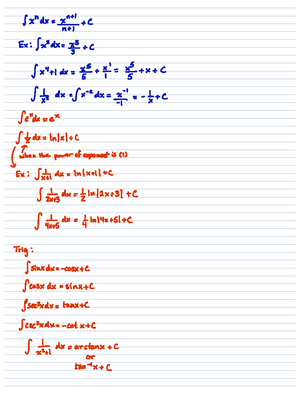 ∫xⁿdx = xⁿ⁺¹/n+1 + C
Ex: ∫x²dx = x³/3 + C
∫x⁴+1 dx = x⁵/5 + x¹/1 = x⁵/5 + x + C
∫1/x² dx = ∫x⁻²dx = x⁻¹/-1 = -1/x + C
∫eˣdx = eˣ
∫1/x dx = ln|x| + C
when the power of exponent is (1)
Ex: ∫1/x+1 dx = ln|x+1| + C
∫1/2x+3 dx = 1/2 ln|2x+3| + C
∫1/4x+5 dx = 1/4 ln|4x+5| + C
Trig:
∫sinx dx = -cosx + C
∫cosx dx = sinx + C
∫sec²x dx = tanx + C
∫csc²x dx = -cot x + C
∫1/x²+1 dx = arctanx + C
or
tan⁻¹x + C